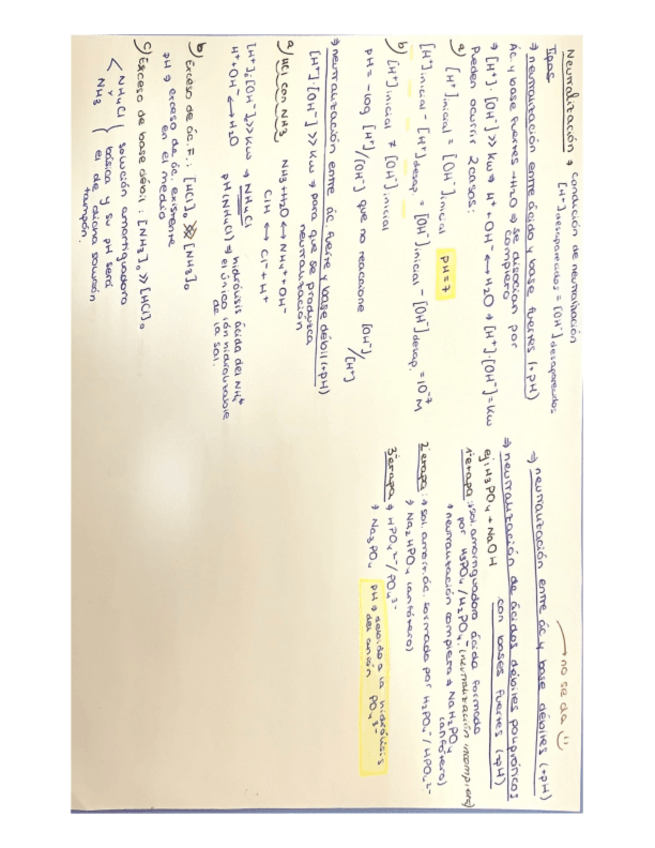 Neutralización → condición de neutralización
[H+]desaparecidos = [OH-]desaparecidos
Tipos
→ neutralización entre ácido y base fuertes (+pH)
Ác. y base fuertes → H2O → se disocian por
completo
→ [H+]·[OH-] >> Kw → H+ + OH- ↔ H2O → [H+]·[OH-] = Kw
Pueden ocurrir 2 casos:
a) [H+]inicial = [OH-]inicial pH=7
[H+]inicial - [H+]desap. = [OH-]inicial - [OH-]desap. = 10-7 M
b) [H+]inicial ≠ [OH-]inicial
pH = -log [H+]/[OH-] que no reaccione [OH-]/[H+]
→ neutralización entre ác. fuerte y base débil (+pH)
[H+]·[OH-] >> Kw → para que se produzca
neutralización
a) HCl con NH3 NH3 + H2O ↔ NH4+ + OH-
ClH ↔ Cl- + H+
[H+]·[OH-] >> Kw → NH4Cl
H+ + OH- ↔ H2O
pH(NH4Cl) → hidrólisis ácida del NH4+
el único ión hidrolizable
de la sal.
b) Exceso de ác. F.: [HCl]0 >> [NH3]0
pH → exceso de ác. existente
en el medio
c) Exceso de base débil: [NH3]0 >> [HCl]0
NH4Cl
NH3
solución amortiguadora
básica y su pH será
el de dicha solución
tampón.
→ no se da :)
→ neutralización entre ác. y base débiles (+pH)
→ neutralización de ácidos débiles polipróticos
con bases fuertes (+pH)
ej: H3PO4 + NaOH
1ª etapa: → sol. amortiguadora ácida formado
por H3PO4/H2PO4- (neutralización incompleta)
→ neutralización completa → NaH2PO4
(anfótero)
2ª etapa: → sol. amort. ác. formada por H2PO4-/HPO42-
→ Na2HPO4 (anfótero)
3ª etapa → HPO42-/PO43-
→ Na3PO4 pH → debido a la hidrólisis
del anión PO43-